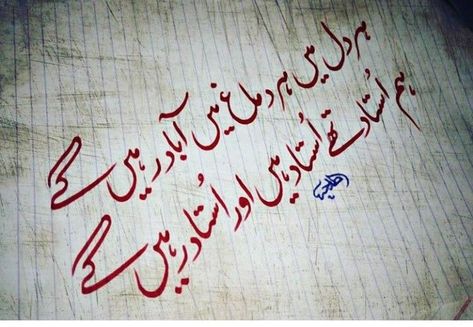 ہر دل میں ہر دماغ میں آباد رہیں گے
ہم اُستاد تھے اُستاد ہیں اور اُستاد رہیں گے